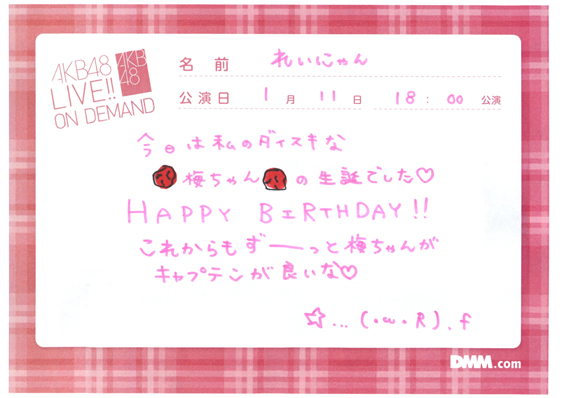 AKB48
LIVE!!
ON DEMAND
AKB
48
名前 れいにゃん
公演日 1月 11日 18:00 公演
今日は私のダイスキな
梅ちゃん の生誕でした♡
HAPPY BIRTHDAY!!
これからもずーーっと梅ちゃんが
キャプテンが良いな♡
☆...(・ω・R).f
DMM.com